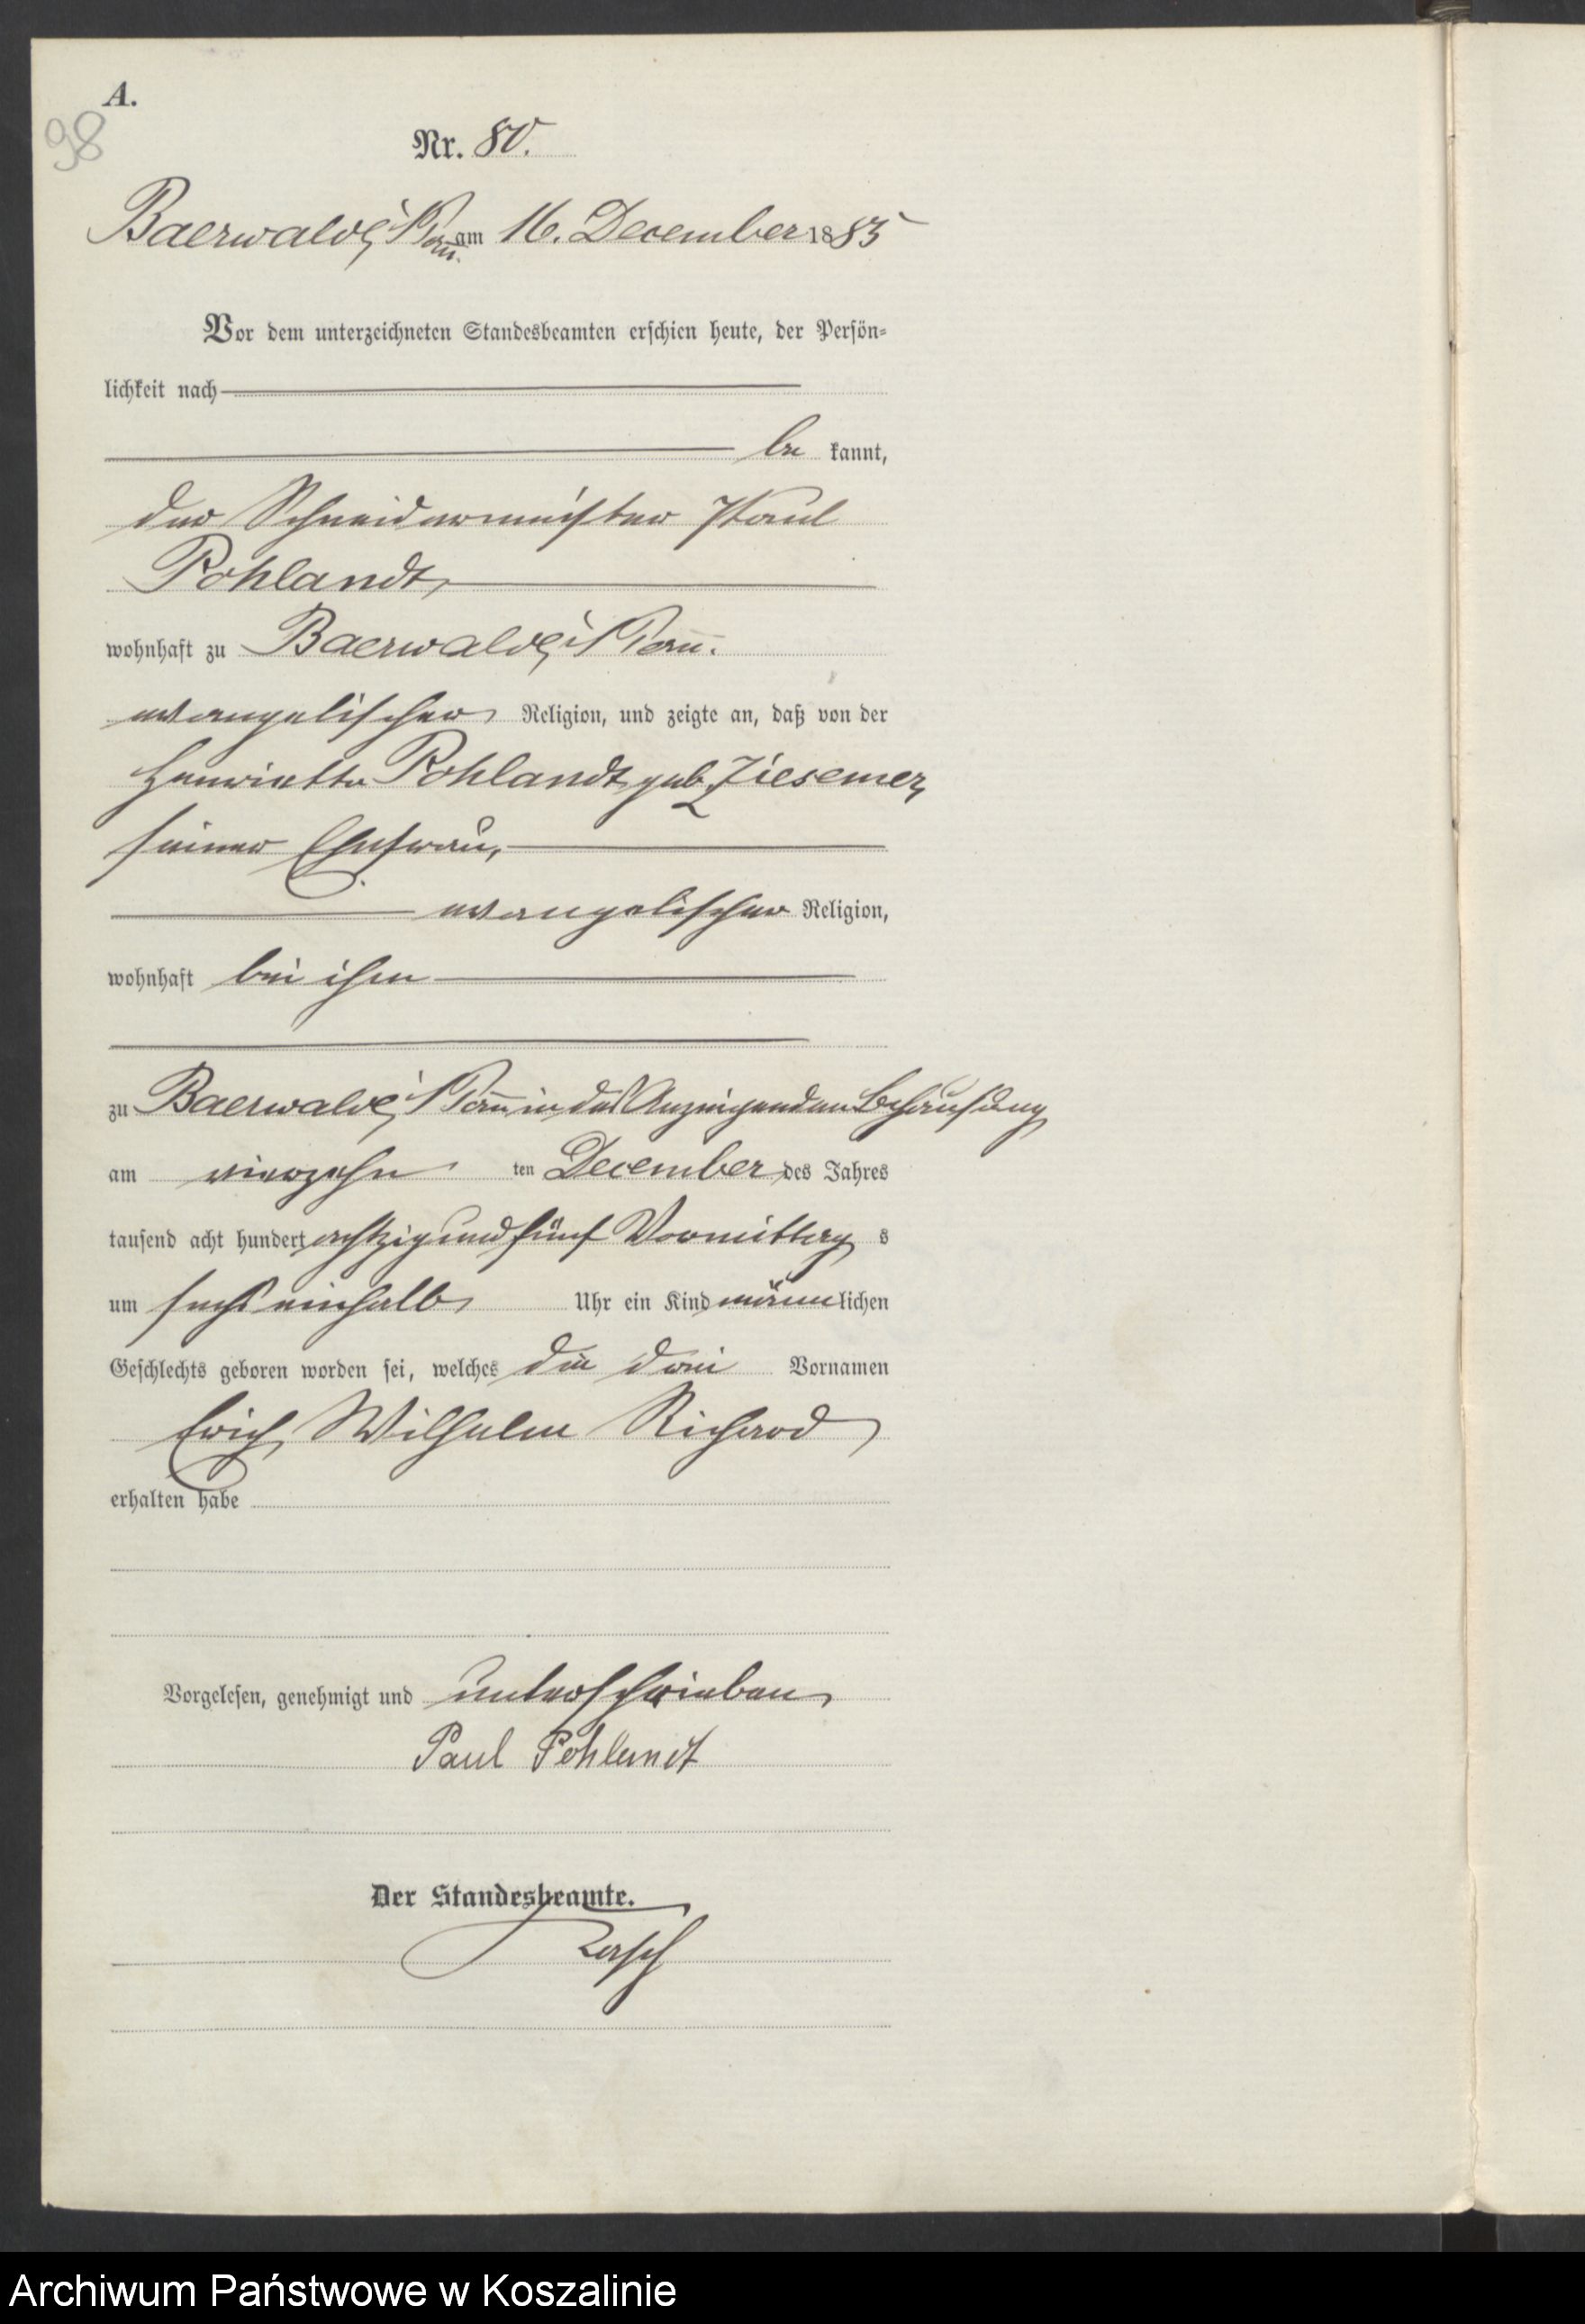 A.
98
Nr. 80.
Baerwalde i/Pom. am 16. December 1885
Vor dem unterzeichneten Standesbeamten erschien heute, der Persön-
lichkeit nach
be kannt,
der Schneidermeister Paul
Pohlandt,
wohnhaft zu Baerwalde i/Pom.
evangelischer Religion, und zeigte an, daß von der
Henriette Pohlandt geb. Ziesemer,
seiner Ehefrau,
evangelischer Religion,
wohnhaft bei ihm
zu Baerwalde i/Pom in des Anzeigenden Behausung
am vierzehn ten December des Jahres
tausend acht hundert achtzig und fünf Vormittag s
um sechs einhalb Uhr ein Kind männlichen
Geschlechts geboren worden sei, welches die drei Vornamen
Erich Wilhelm Richard
erhalten habe
Vorgelesen, genehmigt und unterschrieben
Paul Pohlandt
Der Standesbeamte.
Archiwum Państwowe w Koszalinie